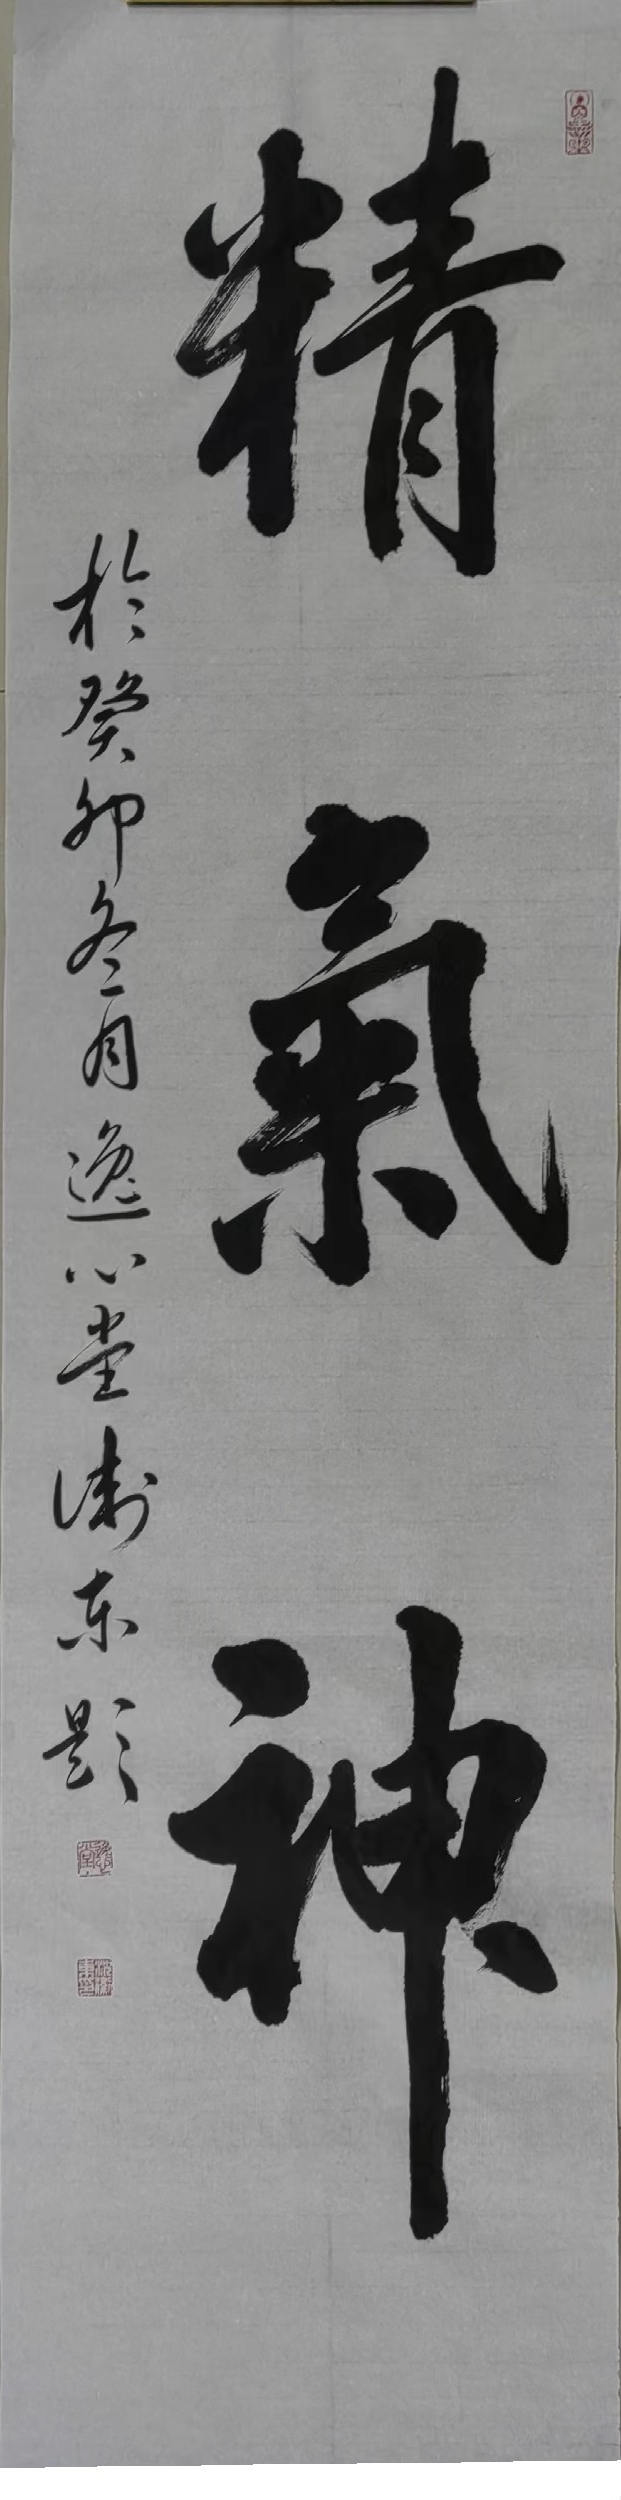 精氣神
於癸卯冬月逸心堂衛东題